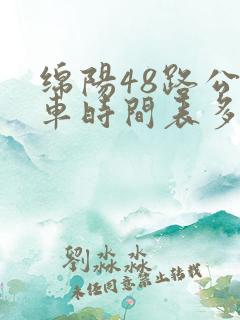 绵陽48路公
車時間表多
劉淼淼
未经同意禁止转载